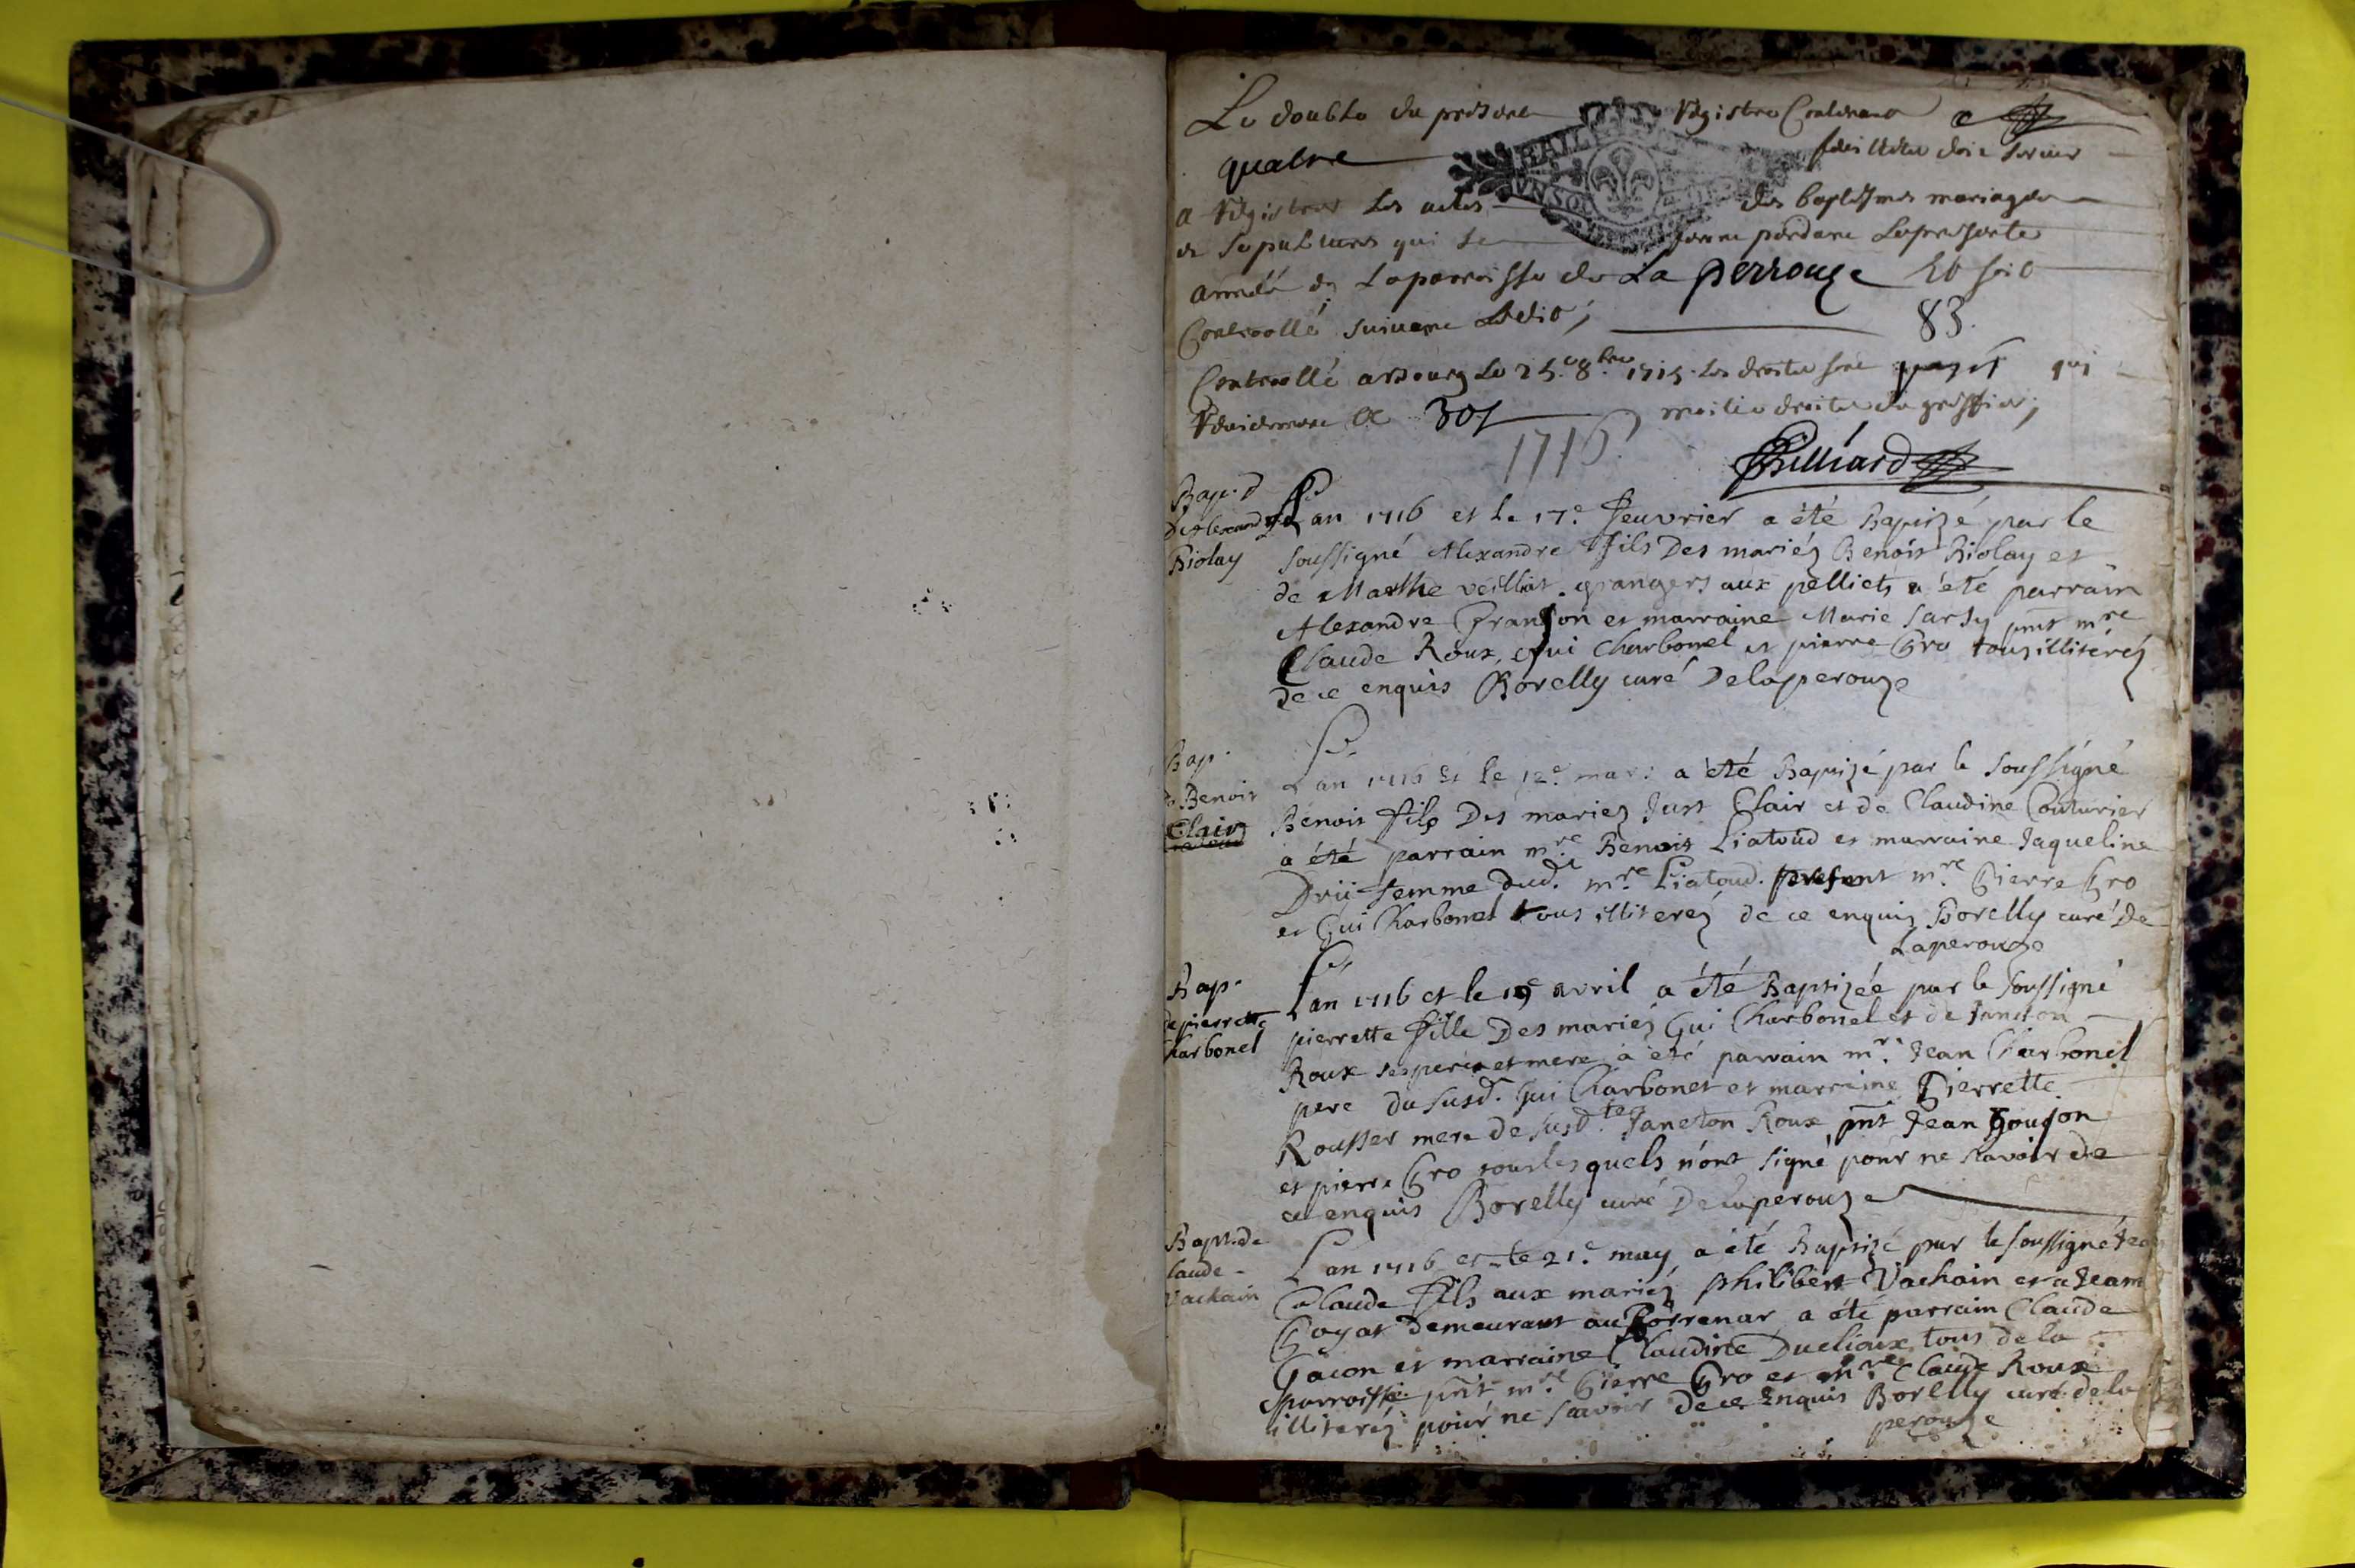 Le double du present Registre Contenant
quatre feuillets doit servir
a Registrer les actes des baptesmes mariages
et sepultures qui se feront pendant la presente
année en la parroisse de La perrouze et soit
Controollé suivant Ledit; 83.
Controollé a bourg le 25.e 8.bre 1715. les droits sont payés qui
Reviennent a 30s moitié droits du greffier;
1716
Billiard
Bap. d
d'Alexandre
Riolay
Lan 1716 et le 17.e feuvrier a été Baptizé par le
soussigné Alexandre fils Des mariéz Benoit Riolay et
de Marthe veillat. grangers aux pelliets a été parrain
Alexandre Franson et marraine Marie Sarsy pnt mre
Claude Roux, Gui Charbonel et pierre Gro tous illiteréz
de ce enquis Borelly curé Delaperouze
Bap.
de Benoit
Clair
Lan 1716 et le 12.e mars a été Baptizé par le soussigné
Benoit fils Des mariez Just Clair et de Claudine Couturier
a été parrain mre Benoit Liatoud et marraine Jaqueline
Drii femme dud. mre Liatoud. present mre Pierre Gro
et Gui Charbonel tous illiterez de ce enquis Borelly curé De
Laperouze
Bap.
de pierrette
Charbonel
Lan 1716 et le 19e avril a été Baptizée par le soussigné
pierrette fille Des mariéz Gui Charbonel et de Janeton
Roux ses pere et mere a été parrain mr. Jean Charbonel
pere du susd. Gui Charbonel et marraine Pierrette
Rousset mere de susd.te Janeton Roux pnt Jean Goujon
et pierre Gro tous lesquels n'ont signé pour ne savoir de
ce enquis Borelly curé Delaperouze
Bapt. de
Claude
Vachain
Lan 1716 et le 21.e may a été Baptizé par le soussigné
Claude fils aux mariez philibert Vachain et a Jeanne
Goyat demeurant au a été parrain Claude
Gacon et marraine Claudine Ducliaux tous de la
parroisse pnt mre Pierre Gro et mre Claude Roux
illiteréz pour ne savoir de ce enquis Borelly curé dela
perouze